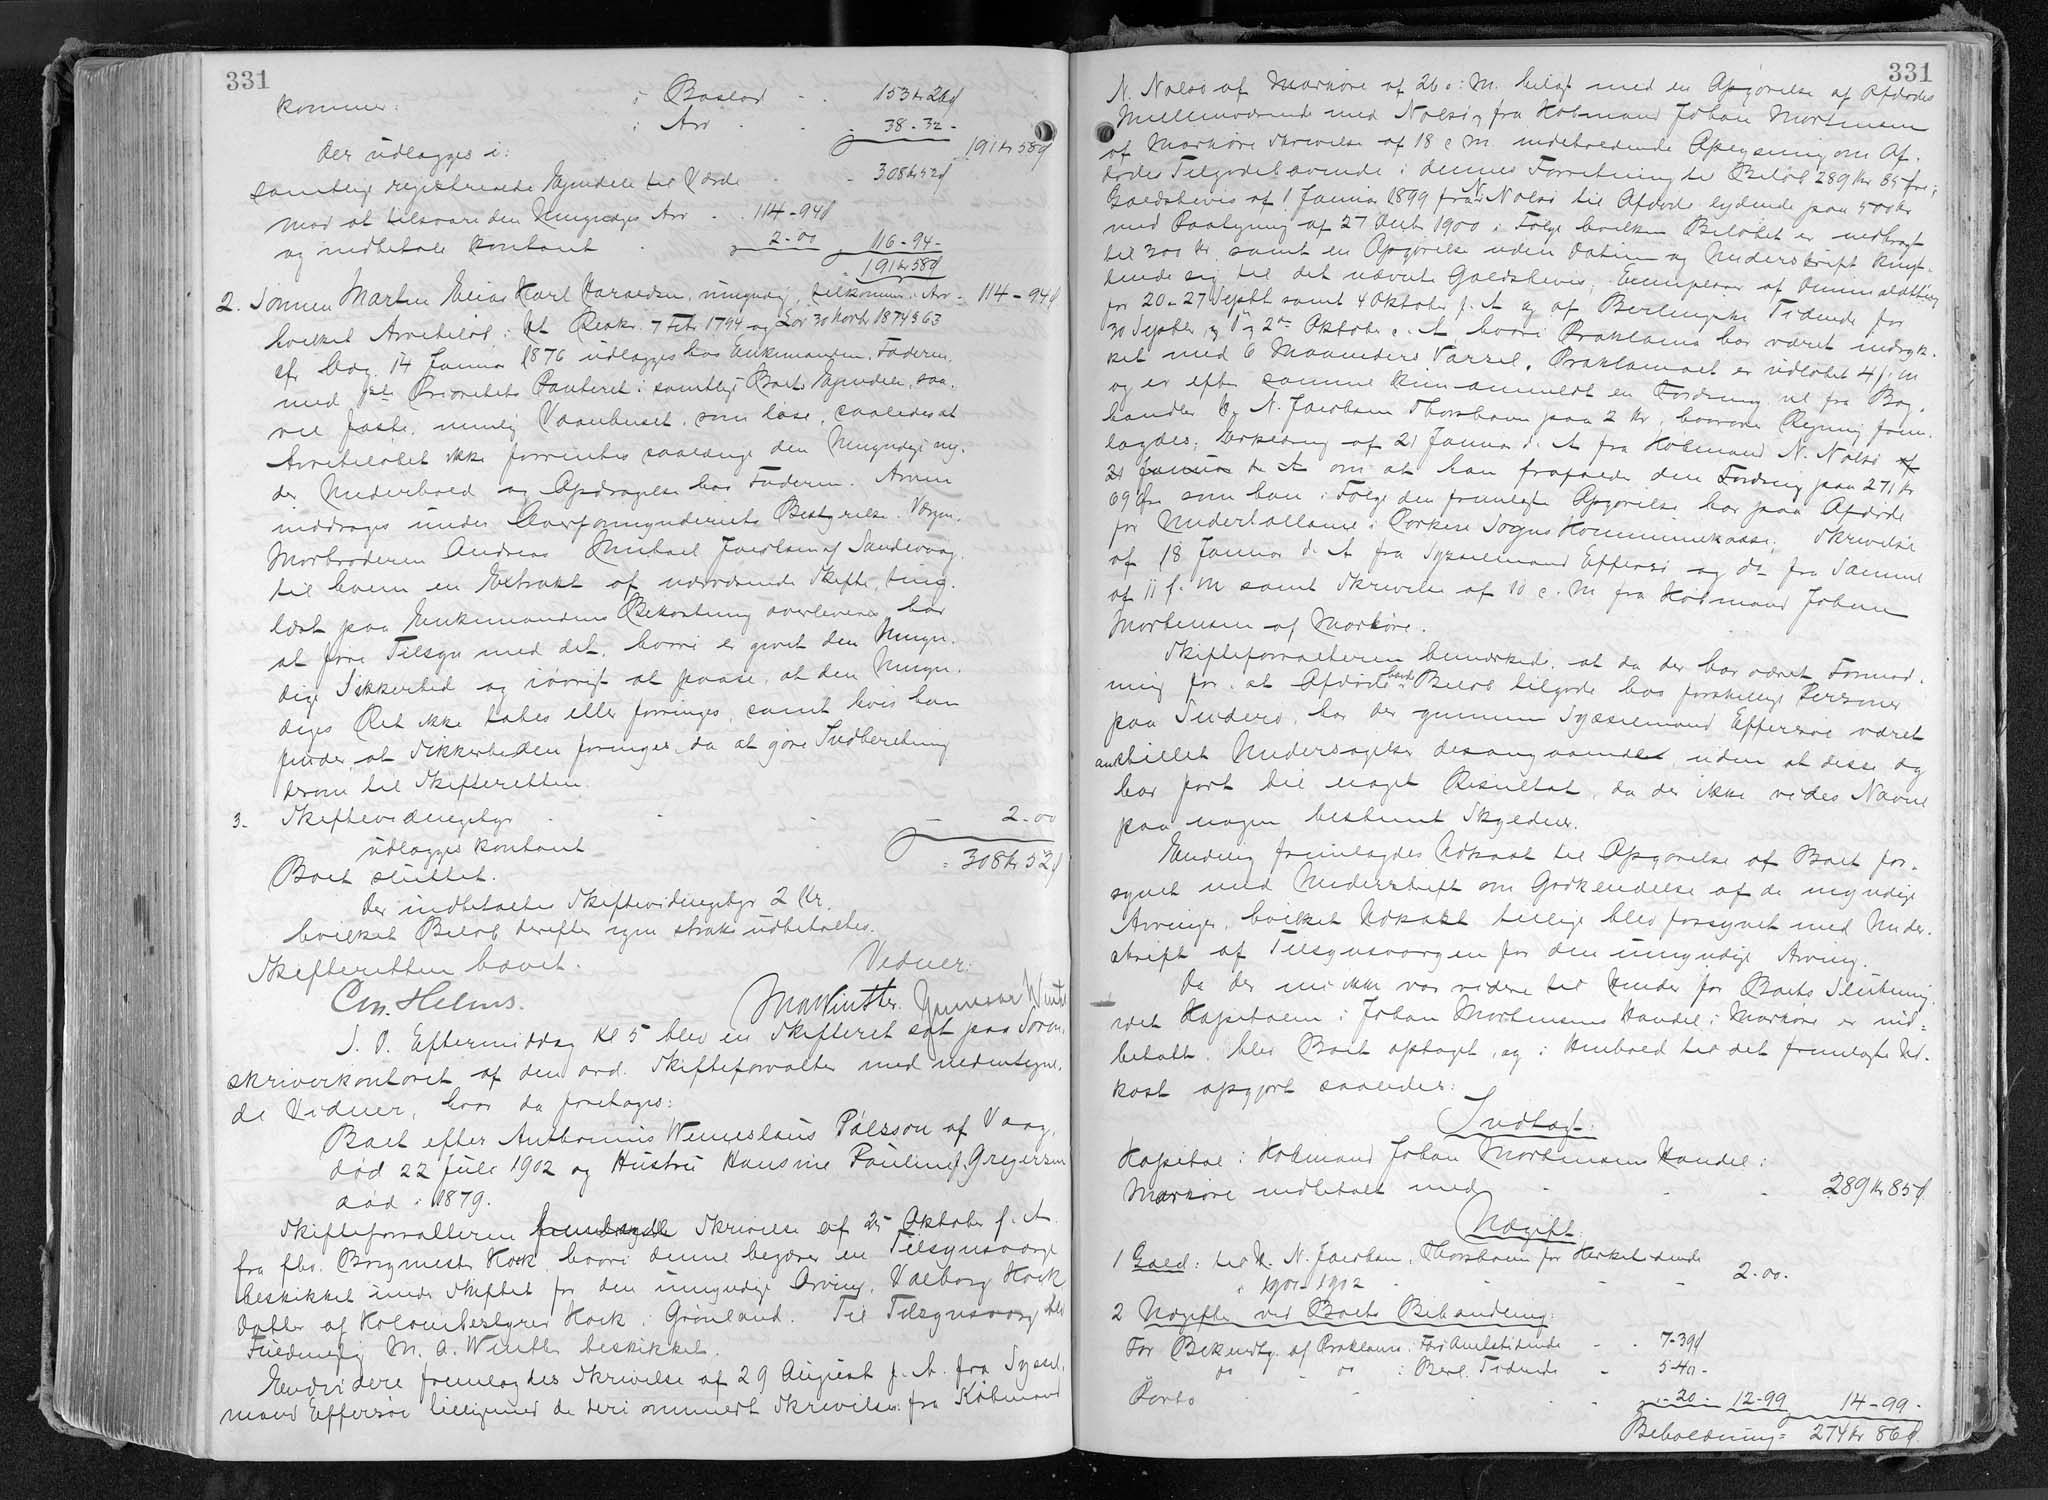 331
kommer: i Boslod - - 153 Kr 26 Ø
i Arv - - - 38 - 32 -
191 Kr 58 Ø
Der udlægges i:
samtlige registrerede Ejendele til Værdi - - 308 Kr 52 Ø
mod at tilsvare den Umyndiges Arv - . 114 - 94 Ø
og indbetale kontant - 2 - 00 116 - 94 -
191 Kr 58 Ø
2. Sønnen Martin Elias Karl Haraldsen, umyndig, tilkommer i Arv - 114 - 94 Ø
hvilket Arvebeløb i Ht Reskr. 7 Febr 1794 og Lov 30 Novbr 1874 § 63
cfr Bkg. 14 Januar 1876 udlægges hos Enkemanden, Faderen,
med 1ste Prioritets Panteret i samtlige Boets Ejendele, saa-
vel faste, nemlig Vaanhuset, som løse, saaledes at
Arvebeløbet ikke forrentes saalænge den Umyndige ny-
der Underhold og Opdragelse hos Faderen. Arven
inddrages under Overformynderiets Bestyrelse. Værgen,
Morbroderen Andreas Michael Jacobsen af Sandevaag,
til hvem en Extrakt af nærværende Skifte, ting-
læst paa Enkemandens Bekostning overleveres har
at føre Tilsyn med det, hvori er givet den Umyn-
dige Sikkerhed og iøvrigt at paase, at den Umyn-
diges Ret ikke tabes eller forringes, samt hvis han
finder, at Sikkerheden forringes, da at gøre Indberetning
derom til Skifteretten.
3. Skifteviduegebyr - - - 2 - 00
udlægges kontant = 308 Kr 52 Ø
Boet sluttet.
Der indbetaltes Skiftevidnegebyr 2 Kr.
hvilket Beløb derefter igen straks udbetaltes.
Skifteretten hævet.
Vidner:
Chr. Helms. MAWinther.
S. D. Eftermiddag Kl 5 blev en Skifteret sat paa Soren-
skriverkontoret af den ord. Skifteforvalter med undertegne-
de Vidner, hvor da foretoges:
Boet efter Anthonius Wenneslaus Pálsson af Vaag,
død 22 Juli 1902 og Hustru Hansine Pauline f. Gregersen
død i 1879.
Skifteforvalteren fremlagde Skrivelse af 25 Oktober f. A.
fra fhv. Borgmester Hock, hvori denne begærer en Tilsynsværge
beskikket under Skiftet for den umyndige Arving, Valborg Hock
Datter af Kolonibestyrer Hock i Grønland. Til Tilsynsværge blev
Fuldmægtig M. A. Winther beskikket.
Endvidere fremlagdes Skrivelse af 29 August f. A. fra Syssel-
mand Effersøe tilligemed de deri ommeldt Skrivelser: fra Købmand
331
N. Nolsø af Kvarnøre af 26 s. M. bilagt med en Opgørelse af Afdødes
Mellemværende med Nolsø, fra Købmand Johan Mortensen
af Kvarnøre Skrivelse af 18 s. M. indeholdende Oplysning om Af-
dødes Tilgodehavende i dennes Forretning til Beløb 289 Kr 85 Øre;
Gældsbevis af 1 Januar 1899 fra N. Nolsø til Afdøde lydende paa 500 Kr
med Paategning af 27 Decbr 1900 i Følge hvilken Beløbet er nedbragt
til 300 Kr, samt en Opgørelse uden Datum og Underskrift knyt-
tende sig til det nævnte Gældsbevis; Exemplarer af Dimmalætting
for 20 - 27 Septbr samt 4 Oktober f. A. og af Berlingske Tidende for
30 Septbr og 1 og 2den Oktober s. A. hvori Proklama har været indryk-
ket med 6 Maaneders Varsel. Proklamaet er udløbet 4 f. M
og er efter samme kun anmeldt en Fordring nl fra Bog-
handler H. N. Jacobsen Thorshavn paa 2 Kr, hvorover Regning frem-
lagdes; Erklæring af 21 Januar d. A fra Købmand N. Nolsø af
21 Januar d. A om at han frafalder den Fordring paa 271 Kr
69 Øre som han i Følge den fremlagte Opgørelse har paa Afdøde
for Underballance i Porkere Sogns Kommunekasse; Skrivelse
af 18 Januar d. A fra Sysselmand Effersø og do fra Samme
af 11 f. M samt Skrivelse af 10 s. M fra Købmand Johan
Mortensen af Kvarnøre.
Skifteforvalteren bemærkede, at da der har været Formod-
ning for, at Afdøde havde Beløb tilgode hos forskellige Personer
paa Suderø, har der gennem Sysselmand Effersøe været
anstillet Undersøgelser desangaaende, uden at disse dog
har ført til noget Resultat, da der ikke vides Navne
paa nogen bestemt Skyldner.
Endelig fremlagdes Udkast til Opgørelse af Boet for-
synet med Underskrift om Godkendelse af de myndige
Arvinger, hvilket Udkast tillige blev forsynet med Under-
skrift af Tilsynsværgen for den umyndige Arving.
Da der nu ikke var videre til Hinder for Boets Slutning,
idet Kapitalen i Johan Mortensens Handel i Kvarnøre er ind-
betalt, blev Boet optaget, og i Henhold til det fremlagte Ud-
kast opgjort saaledes:
Indtægt:
Kapital i Købmand Johan Mortensens Handel i
Kvarnøre indbetalt med - - - 289 Kr 85 Ø
Udgift:
1 Gæld: til H. N. Jacobsen, Thorshavn for
i 1901-1902 - - - 2.00.
2 Udgifter ved Boets Behandling:
For Bekendtg. af Proklama i Færø Amtstidende - . 7-39 Ø
do - do i Berl. Tidende - 5-40 -
Porto - . . - - 20 - 12-99 14-99 -
Beholdning = 274 Kr 86 Ø